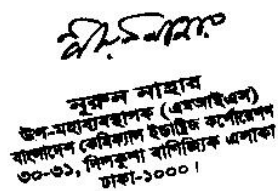 নূরুন নাহার
উপ-মহাব্যবস্থাপক (এমআইএস)
বাংলাদেশ কেমিক্যাল ইন্ডাষ্ট্রিজ কর্পোরেশন
৩০-৩১, দিলকুশা বাণিজ্যিক এলাকা
ঢাকা-১০০০।